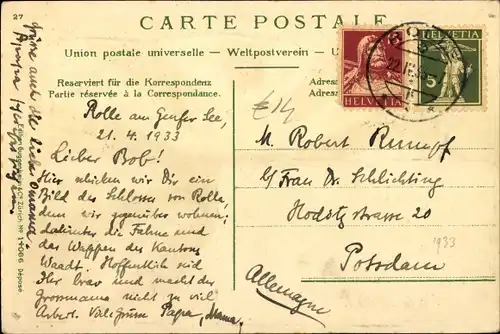 27
CARTE POSTALE
Union postale universelle — Weltpostverein —
Reserviert für die Korrespondenz
Partie réservée à la Correspondance.
HELVETIA
HELVETIA
5
Rolle am Genfer See,
21. 4. 1933
Lieber Bob!
Hier schicken wir Dir ein
Bild des Schlosses von Rolle,
dem wir gegenüber wohnen;
dahinter die Fahne und
das Wappen des Kantons
Waadt. Hoffentlich seid
Ihr brav und macht der
Grossmama nicht zu viel
Arbeit. Viele Grüsse Papa, Mama.
Grüsse auch die liebe Omama
M. Robert Rumpf
c/o Frau Dr. Schlichting
Potsdam
1933
Allemagne
Zürich Nº 14086 Déposé